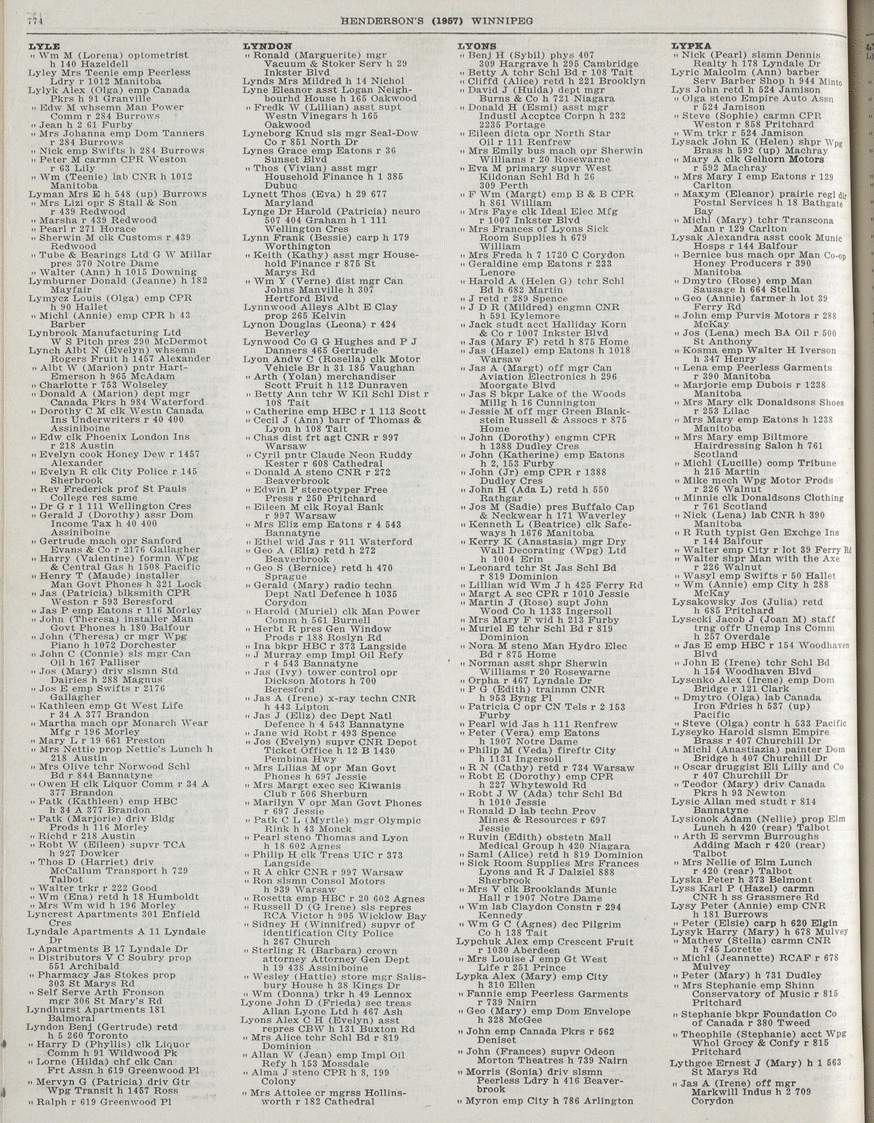 774
HENDERSON'S (1957) WINNIPEG
LYLE
" Wm M (Lorena) optometrist
h 140 Hazeldell
Lyley Mrs Teenie emp Peerless
Ldry r 1012 Manitoba
Lylyk Alex (Olga) emp Canada
Pkrs h 91 Granville
" Edw M whsemn Man Power
Comm r 284 Burrows
" Jean h 2 61 Furby
" Mrs Johanna emp Dom Tanners
r 284 Burrows
" Nick emp Swifts h 284 Burrows
" Peter M carmn CPR Weston
r 63 Lily
" Wm (Teenie) lab CNR h 1012
Manitoba
Lyman Mrs E h 548 (up) Burrows
" Mrs Lizi opr S Stall & Son
r 439 Redwood
" Marsha r 439 Redwood
" Pearl r 271 Horace
" Sherwin M clk Customs r 439
Redwood
" Tube & Bearings Ltd G W Millar
pres 370 Notre Dame
" Walter (Ann) h 1015 Downing
Lymburner Donald (Jeanne) h 182
Mayfair
Lymycz Louis (Olga) emp CPR
h 90 Hallet
" Michl (Annie) emp CPR h 43
Barber
Lynbrook Manufacturing Ltd
W S Pitch pres 290 McDermot
Lynch Albt N (Evelyn) whsemn
Rogers Fruit h 1457 Alexander
" Albt W (Marion) pntr Hart-
Emerson h 965 McAdam
" Charlotte r 753 Wolseley
" Donald A (Marion) dept mgr
Canada Pkrs h 984 Waterford
" Dorothy C M clk Westn Canada
Ins Underwriters r 40 400
Assiniboine
" Edw clk Phoenix London Ins
r 218 Austin
" Evelyn cook Honey Dew r 1457
Alexander
" Evelyn R clk City Police r 145
Sherbrook
" Rev Frederick prof St Pauls
College res same
" Dr G r 1 111 Wellington Cres
" Gerald J (Dorothy) assr Dom
Income Tax h 40 400
Assiniboine
" Gertrude mach opr Sanford
Evans & Co r 2176 Gallagher
" Harry (Valentine) formn Wpg
& Central Gas h 1508 Pacific
" Henry T (Maude) installer
Man Govt Phones h 321 Lock
" Jas (Patricia) blksmith CPR
Weston r 593 Beresford
" Jas P emp Eatons r 116 Morley
" John (Theresa) installer Man
Govt Phones h 180 Balfour
" John (Theresa) cr mgr Wpg
Piano h 1072 Dorchester
" John C (Connie) sls mgr Can
Oil h 167 Palliser
" Jos (Mary) driv slsmn Std
Dairies h 288 Magnus
" Jos E emp Swifts r 2176
Gallagher
" Kathleen emp Gt West Life
r 34 A 377 Brandon
" Martha mach opr Monarch Wear
Mfg r 196 Morley
" Mary L r 19 661 Preston
" Mrs Nettie prop Nettie's Lunch h
218 Austin
" Mrs Olive tchr Norwood Schl
Bd r 844 Bannatyne
" Owen H clk Liquor Comm r 34 A
377 Brandon
" Patk (Kathleen) emp HBC
h 34 A 377 Brandon
" Patk (Marjorie) driv Bldg
Prods h 116 Morley
" Richd r 218 Austin
" Robt W (Eileen) supvr TCA
h 927 Dowker
" Thos D (Harriet) driv
McCallum Transport h 729
Talbot
" Walter trkr r 222 Good
" Wm (Ena) retd h 18 Humboldt
" Mrs Wm wid h 196 Morley
Lyncrest Apartments 301 Enfield
Cres
Lyndale Apartments A 11 Lyndale
Dr
" Apartments B 17 Lyndale Dr
" Distributors V C Soubry prop
551 Archibald
" Pharmacy Jas Stokes prop
303 St Marys Rd
" Self Serve Arth Fronson
mgr 306 St Mary's Rd
Lyndhurst Apartments 181
Balmoral
Lyndon Benj (Gertrude) retd
h 5 260 Toronto
" Harry D (Phyllis) clk Liquor
Comm h 91 Wildwood Pk
" Lorne (Hilda) chf clk Can
Frt Assn h 619 Greenwood Pl
" Mervyn G (Patricia) driv Gtr
Wpg Transit h 1457 Ross
" Ralph r 619 Greenwood Pl
LYNDON
" Ronald (Marguerite) mgr
Vacuum & Stoker Serv h 29
Inkster Blvd
Lynds Mrs Mildred h 14 Nichol
Lyne Eleanor asst Logan Neigh-
bourhd House h 165 Oakwood
" Fredk W (Lillian) asst supt
Westn Vinegars h 165
Oakwood
Lyneborg Knud sls mgr Seal-Dow
Co r 851 North Dr
Lynes Grace emp Eatons r 36
Sunset Blvd
" Thos (Vivian) asst mgr
Household Finance h 1 385
Dubuc
Lynett Thos (Eva) h 29 677
Maryland
Lynge Dr Harold (Patricia) neuro
507 404 Graham h 1 111
Wellington Cres
Lynn Frank (Bessie) carp h 179
Worthington
" Keith (Kathy) asst mgr House-
hold Finance r 875 St
Marys Rd
" Wm Y (Verne) dist mgr Can
Johns Manville h 307
Hertford Blvd
Lynnwood Alleys Albt E Clay
prop 265 Kelvin
Lynon Douglas (Leona) r 424
Beverley
Lynwood Co G G Hughes and P J
Danners 465 Gertrude
Lyon Andw C (Rosella) clk Motor
Vehicle Br h 31 185 Vaughan
" Arth (Yolan) merchandiser
Scott Fruit h 112 Dunraven
" Betty Ann tchr W Kil Schl Dist r
108 Tait
" Catherine emp HBC r 1 113 Scott
" Cecil J (Ann) barr of Thomas &
Lyon h 108 Tait
" Chas dist frt agt CNR r 997
Warsaw
" Cyril pntr Claude Neon Ruddy
Kester r 608 Cathedral
" Donald A steno CNR r 272
Beaverbrook
" Edwin P stereotyper Free
Press r 250 Pritchard
" Eileen M clk Royal Bank
r 997 Warsaw
" Mrs Eliz emp Eatons r 4 543
Bannatyne
" Ethel wid Jas r 911 Waterford
" Geo A (Eliz) retd h 272
Beaverbrook
" Geo S (Bernice) retd h 470
Sprague
" Gerald (Mary) radio techn
Dept Natl Defence h 1035
Corydon
" Harold (Muriel) clk Man Power
Comm h 561 Burnell
" Herbt R pres Gen Window
Prods r 188 Roslyn Rd
" Ina bkpr HBC r 373 Langside
" J Murray emp Impl Oil Refy
r 4 543 Bannatyne
" Jas (Ivy) tower control opr
Dickson Motors h 700
Beresford
" Jas A (Irene) x-ray techn CNR
h 443 Lipton
" Jas J (Eliz) dec Dept Natl
Defence h 4 543 Bannatyne
" Jane wid Robt r 493 Spence
" Jos (Evelyn) supvr CNR Depot
Ticket Office h 12 B 1430
Pembina Hwy
" Mrs Lilias M opr Man Govt
Phones h 697 Jessie
" Mrs Margt exec sec Kiwanis
Club r 506 Sherburn
" Marilyn V opr Man Govt Phones
r 697 Jessie
" Patk C L (Myrtle) mgr Olympic
Rink h 43 Monck
" Pearl steno Thomas and Lyon
h 18 602 Agnes
" Philip H clk Treas UIC r 373
Langside
" R A chkr CNR r 997 Warsaw
" Ron slsmn Consol Motors
h 939 Warsaw
" Rosetta emp HBC r 20 602 Agnes
" Russell D (G Irene) sls repres
RCA Victor h 905 Wicklow Bay
" Sidney H (Winnifred) supvr of
identification City Police
h 267 Church
" Sterling R (Barbara) crown
attorney Attorney Gen Dept
h 19 438 Assiniboine
" Wesley (Hattie) store mgr Salis-
bury House h 38 Kings Dr
" Wm (Donna) trkr h 49 Lennox
Lyone John D (Frieda) sec treas
Allan Lyone Ltd h 467 Ash
Lyons Alex C H (Evelyn) asst
repres CBW h 131 Buxton Rd
" Mrs Alice tchr Schl Bd r 819
Dominion
" Allan W (Jean) emp Impl Oil
Refy h 153 Mossdale
" Alma J steno CPR h 8, 199
Colony
" Mrs Attolee cr mgrss Hollins-
worth r 182 Cathedral
LYONS
" Benj H (Sybil) phys 407
309 Hargrave h 295 Cambridge
" Betty A tchr Schl Bd r 108 Tait
" Cliffd (Alice) retd h 221 Brooklyn
" David J (Hulda) dept mgr
Burns & Co h 721 Niagara
" Donald H (Esmi) asst mgr
Industl Accptce Corpn h 232
2235 Portage
" Eileen dicta opr North Star
Oil r 111 Renfrew
" Mrs Emily bus mach opr Sherwin
Williams r 20 Rosewarne
" Eva M primary supvr West
Kildonan Schl Bd h 26
309 Perth
" F Wm (Margt) emp B & B CPR
h 861 William
" Mrs Faye clk Ideal Elec Mfg
r 1007 Inkster Blvd
" Mrs Frances of Lyons Sick
Room Supplies h 679
William
" Mrs Freda h 7 1720 C Corydon
" Geraldine emp Eatons r 233
Lenore
" Harold A (Helen G) tchr Schl
Bd h 682 Martin
" J retd r 289 Spence
" J D R (Mildred) engmn CNR
h 591 Kylemore
" Jack studt acct Halliday Korn
& Co r 1007 Inkster Blvd
" Jas (Mary F) retd h 875 Home
" Jas (Hazel) emp Eatons h 1018
Warsaw
" Jas A (Margt) off mgr Can
Aviation Electronics h 296
Moorgate Blvd
" Jas S bkpr Lake of the Woods
Millg h 16 Cunnington
" Jessie M off mgr Green Blank-
stein Russell & Assocs r 875
Home
" John (Dorothy) engmn CPR
h 1388 Dudley Cres
" John (Katherine) emp Eatons
h 2, 153 Furby
" John (Jr) emp CPR r 1388
Dudley Cres
" John H (Ada L) retd h 550
Rathgar
" Jos M (Sadie) pres Buffalo Cap
& Neckwear h 171 Waverley
" Kenneth L (Beatrice) clk Safe-
ways h 1676 Manitoba
" Kerry K (Anastasia) mgr Dry
Wall Decorating (Wpg) Ltd
h 1004 Erin
" Leonard tchr St Jas Schl Bd
r 819 Dominion
" Lillian wid Wm J h 425 Ferry Rd
" Margt A sec CPR r 1010 Jessie
" Martin J (Rose) supt John
Wood Co h 1133 Ingersoll
" Mrs Mary F wid h 213 Furby
" Muriel E tchr Schl Bd r 819
Dominion
" Nora M steno Man Hydro Elec
Bd r 875 Home
" Norman asst shpr Sherwin
Williams r 20 Rosewarne
" Orpha r 467 Lyndale Dr
" P G (Edith) trainmn CNR
h 953 Byng Pl
" Patricia C opr CN Tels r 2 153
Furby
" Pearl wid Jas h 111 Renfrew
" Peter (Vera) emp Eatons
h 1907 Notre Dame
" Philip M (Veda) fireftr City
h 1131 Ingersoll
" R N (Cathy) retd r 734 Warsaw
" Robt E (Dorothy) emp CPR
h 227 Whytewold Rd
" Robt J W (Ada) tchr Schl Bd
h 1010 Jessie
" Ronald D lab techn Prov
Mines & Resources r 697
Jessie
" Ruvin (Edith) obstetn Mall
Medical Group h 420 Niagara
" Saml (Alice) retd h 819 Dominion
" Sick Room Supplies Mrs Frances
Lyons and R J Dalziel 888
Sherbrook
" Mrs V clk Brooklands Munic
Hall r 1907 Notre Dame
" Wm lab Claydon Constn r 294
Kennedy
" Wm G C (Agnes) dec Pilgrim
Co h 138 Tait
Lypchuk Alex emp Crescent Fruit
r 1030 Aberdeen
" Mrs Louise J emp Gt West
Life r 251 Prince
Lypka Alex (Mary) emp City
h 310 Ellen
" Fannie emp Peerless Garments
r 739 Nairn
" Geo (Mary) emp Dom Envelope
h 328 McGee
" John emp Canada Pkrs r 562
Deniset
" John (Frances) supvr Odeon
Morton Theatres h 739 Nairn
" Morris (Sonia) driv slsmn
Peerless Ldry h 416 Beaver-
brook
" Myron emp City h 786 Arlington
LYPKA
" Nick (Pearl) slsmn Dennis
Realty h 178 Lyndale Dr
Lyric Malcolm (Ann) barber
Serv Barber Shop h 944 Minto
Lys John retd h 524 Jamison
" Olga steno Empire Auto Assn
r 524 Jamison
" Steve (Sophie) carmn CPR
Weston r 858 Pritchard
" Wm trkr r 524 Jamison
Lysack John K (Helen) shpr Wpg
Brass h 592 (up) Machray
" Mary A clk Gelhorn Motors
r 592 Machray
" Mrs Mary I emp Eatons r 129
Carlton
" Maxym (Eleanor) prairie regl dir
Postal Services h 18 Bathgate
Bay
" Michl (Mary) tchr Transcona
Man r 129 Carlton
Lysak Alexandra asst cook Munic
Hosps r 144 Balfour
" Bernice bus mach opr Man Co-op
Honey Producers r 390
Manitoba
" Dmytro (Rose) emp Man
Sausage h 664 Stella
" Geo (Annie) farmer h lot 39
Ferry Rd
" John emp Purvis Motors r 288
McKay
" Jos (Lena) mech BA Oil r 500
St Anthony
" Kosma emp Walter H Iverson
h 347 Henry
" Lena emp Peerless Garments
r 390 Manitoba
" Marjorie emp Dubois r 1238
Manitoba
" Mrs Mary clk Donaldsons Shoes
r 253 Lilac
" Mrs Mary emp Eatons h 1238
Manitoba
" Mrs Mary emp Biltmore
Hairdressing Salon h 761
Scotland
" Michl (Lucille) comp Tribune
h 215 Martin
" Mike mech Wpg Motor Prods
r 226 Walnut
" Minnie clk Donaldsons Clothing
r 761 Scotland
" Nick (Lena) lab CNR h 390
Manitoba
" R Ruth typist Gen Exchge Ins
r 144 Balfour
" Walter emp City r lot 39 Ferry Rd
" Walter shpr Man with the Axe
r 226 Walnut
" Wasyl emp Swifts r 50 Hallet
" Wm (Annie) emp City h 288
McKay
Lysakowsky Jos (Julia) retd
h 685 Pritchard
Lysecki Jacob J (Joan M) staff
trng offr Unemp Ins Comm
h 257 Overdale
" Jas E emp HBC r 154 Woodhaven
Blvd
" John E (Irene) tchr Schl Bd
h 154 Woodhaven Blvd
Lysenko Alex (Irene) emp Dom
Bridge r 121 Clark
" Dmytro (Olga) lab Canada
Iron Fdries h 537 (up)
Pacific
" Steve (Olga) contr h 533 Pacific
Lyseyko Harold slsmn Empire
Brass r 407 Churchill Dr
" Michl (Anastiazia) painter Dom
Bridge h 407 Churchill Dr
" Oscar druggist Eli Lilly and Co
r 407 Churchill Dr
" Teodor (Mary) driv Canada
Pkrs h 93 Newton
Lysic Allan med studt r 814
Bannatyne
Lysionok Adam (Nellie) prop Elm
Lunch h 420 (rear) Talbot
" Arth E servmn Burroughs
Adding Mach r 420 (rear)
Talbot
" Mrs Nellie of Elm Lunch
r 420 (rear) Talbot
Lyska Peter h 373 Belmont
Lyss Karl P (Hazel) carmn
CNR h ss Grassmere Rd
Lysy Peter (Annie) emp CNR
h 181 Burrows
" Peter (Elsie) carp h 620 Elgin
Lysyk Harry (Mary) h 678 Mulvey
" Mathew (Stella) carmn CNR
h 745 Lorette
" Michl (Jeannette) RCAF r 678
Mulvey
" Peter (Mary) h 731 Dudley
" Mrs Stephanie emp Shinn
Conservatory of Music r 815
Pritchard
" Stephanie bkpr Foundation Co
of Canada r 380 Tweed
" Theophile (Stephanie) acct Wpg
Whol Grocy & Confy r 815
Pritchard
Lythgoe Ernest J (Mary) h 1 563
St Marys Rd
" Jas A (Irene) off mgr
Markwill Indus h 2 709
Corydon